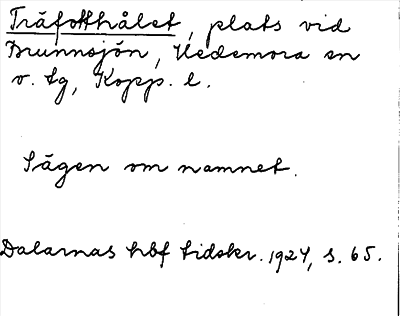 Träfotthålet, plats vid
Brunnsjön, Hedemora sn
v. tg, Kopp. l.
Sägen om namnet.
Dalarnas hbf tidskr. 1924, s. 65.